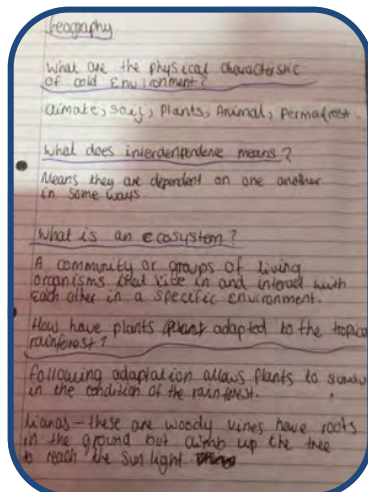 Geography
What are the physical characteristic
of cold Environment?
climate, soil, Plants, Animal, Permafrost.
What does interdenpendene means?
Means they are dependent on one another
in some ways.
What is an ecosystem?
A community or groups of living
organisms that live in and interact with
each other in a specific environment.
How have plants adapted to the tropical
rainforest?
following adaptation allows Plants to
in the condition of the rainforest.
lianas - these are woody vines have roots
in the ground but climb up the tree
to reach the sun light.